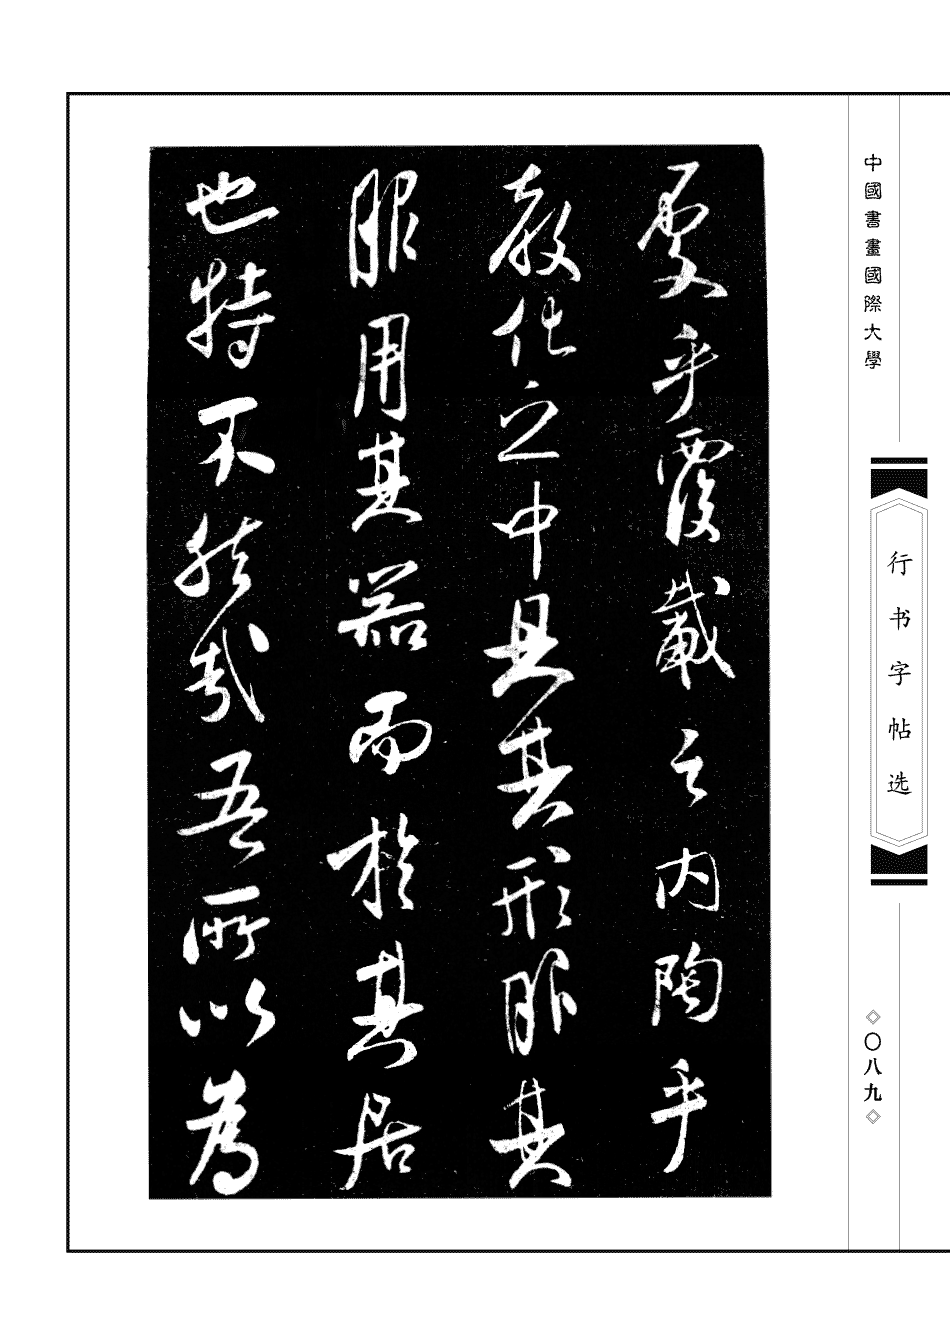 中國書畫國際大學
行书字帖选
◇〇八九◇
處乎覆載之内陶乎
教化之中具其形服其
服用其器而於其居
也特不能哉吾所以為